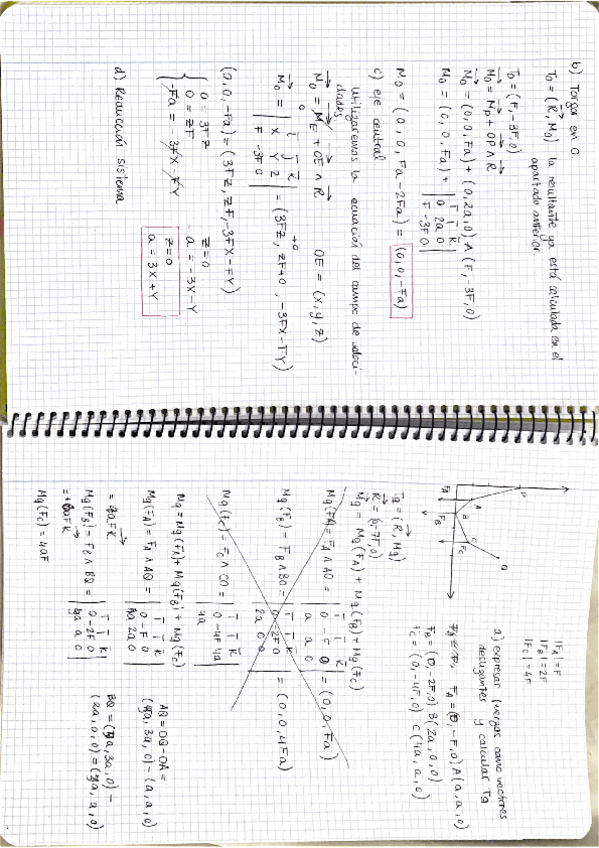 b) Torsor en O.
To = (R, Mo) la resultante ya está calculada en el
apartado anterior.
To = (F, -3F, 0)
Mo = Mp + OP ∧ R
Mo = (0,0,Fa) + (0,2a,0) ∧ (F, -3F, 0)
Mo = (0,0,Fa) + | i j k
0 2a 0
F -3F 0 |
Mo = (0, 0, Fa - 2Fa) = (0,0,-Fa)
c) eje central
Utilizaremos la ecuación del campo de veloci-
dades
Mo = ME + OE ∧ R OE = (x,y,z)
0
Mo = | i j k
x y z
F -3F 0 | = (3Fz, zF+0, -3Fx-Fy)
+0
(0,0,-Fa) = (3Fz, zF, -3Fx-Fy)
0 = 3Fz z=0
0 = zF
-Fa = -3Fx-Fy a = -3x-y
z=0
a = 3x+y
d) Reducción sistema
P
A
B
C
Q
FA
FB
FC
||FA| = F
||FB| = 2F
||FC| = 4F
a) expresar fuerzas como vectores
deslizantes y calcular TQ
FA = (0,-F,0) A(a,a,0)
FB = (0,-2F,0) B(2a,0,0)
FC = (0,-4F,0) C(4a,a,0)
TQ = (R, MQ)
R = (0,-7F,0)
MQ = MQ(FA) + MQ(FB) + MQ(FC)
MQ(FA) = FA ∧ AO = | i j k
0 -F 0
a a 0 | = (0,0,Fa)
MQ(FB) = FB ∧ BO = | i j k
0 -2F 0
2a 0 0 | = (0,0,4Fa)
MQ(FC) = FC ∧ CO = | i j k
0 -4F 4a
4a
MQ = MQ(FA) + MQ(FB) + MQ(FC)
MQ(FA) = FA ∧ AQ = | i j k
0 -F 0
2a 0 | AQ = OQ - OA =
3a, 0) - (a, a, 0)
MQ(FB) = FB ∧ BQ = | i j k
0 -2F 0
a 0 | BQ = 3a, 0) -
(2a, 0, 0) = a, 0)
MQ(FC) = 4aF